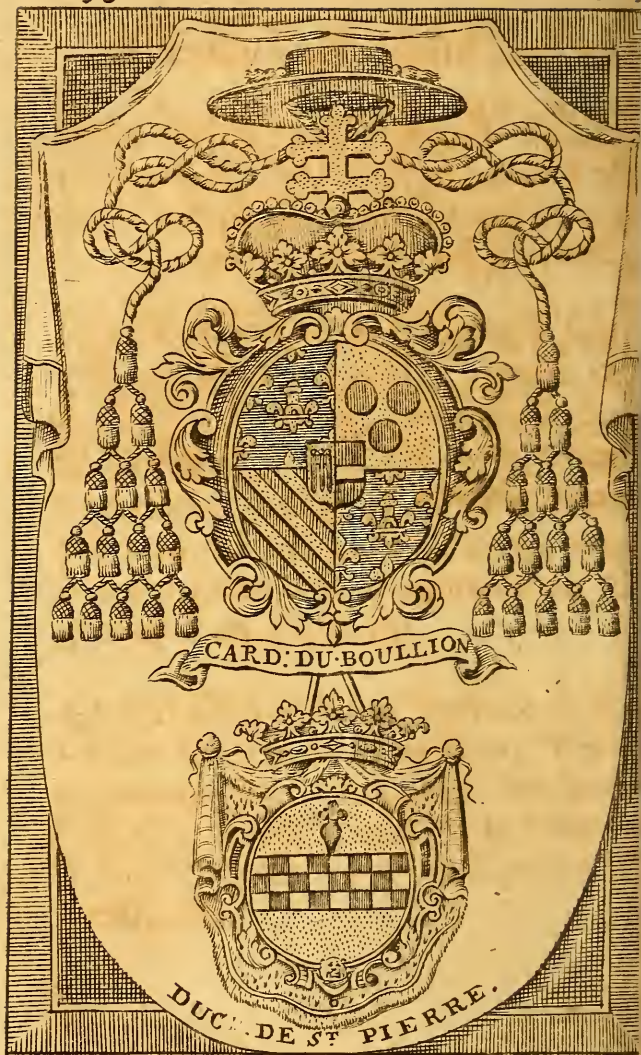 CARD: DU·BOULLION
DUC: DE ST. PIERRE.